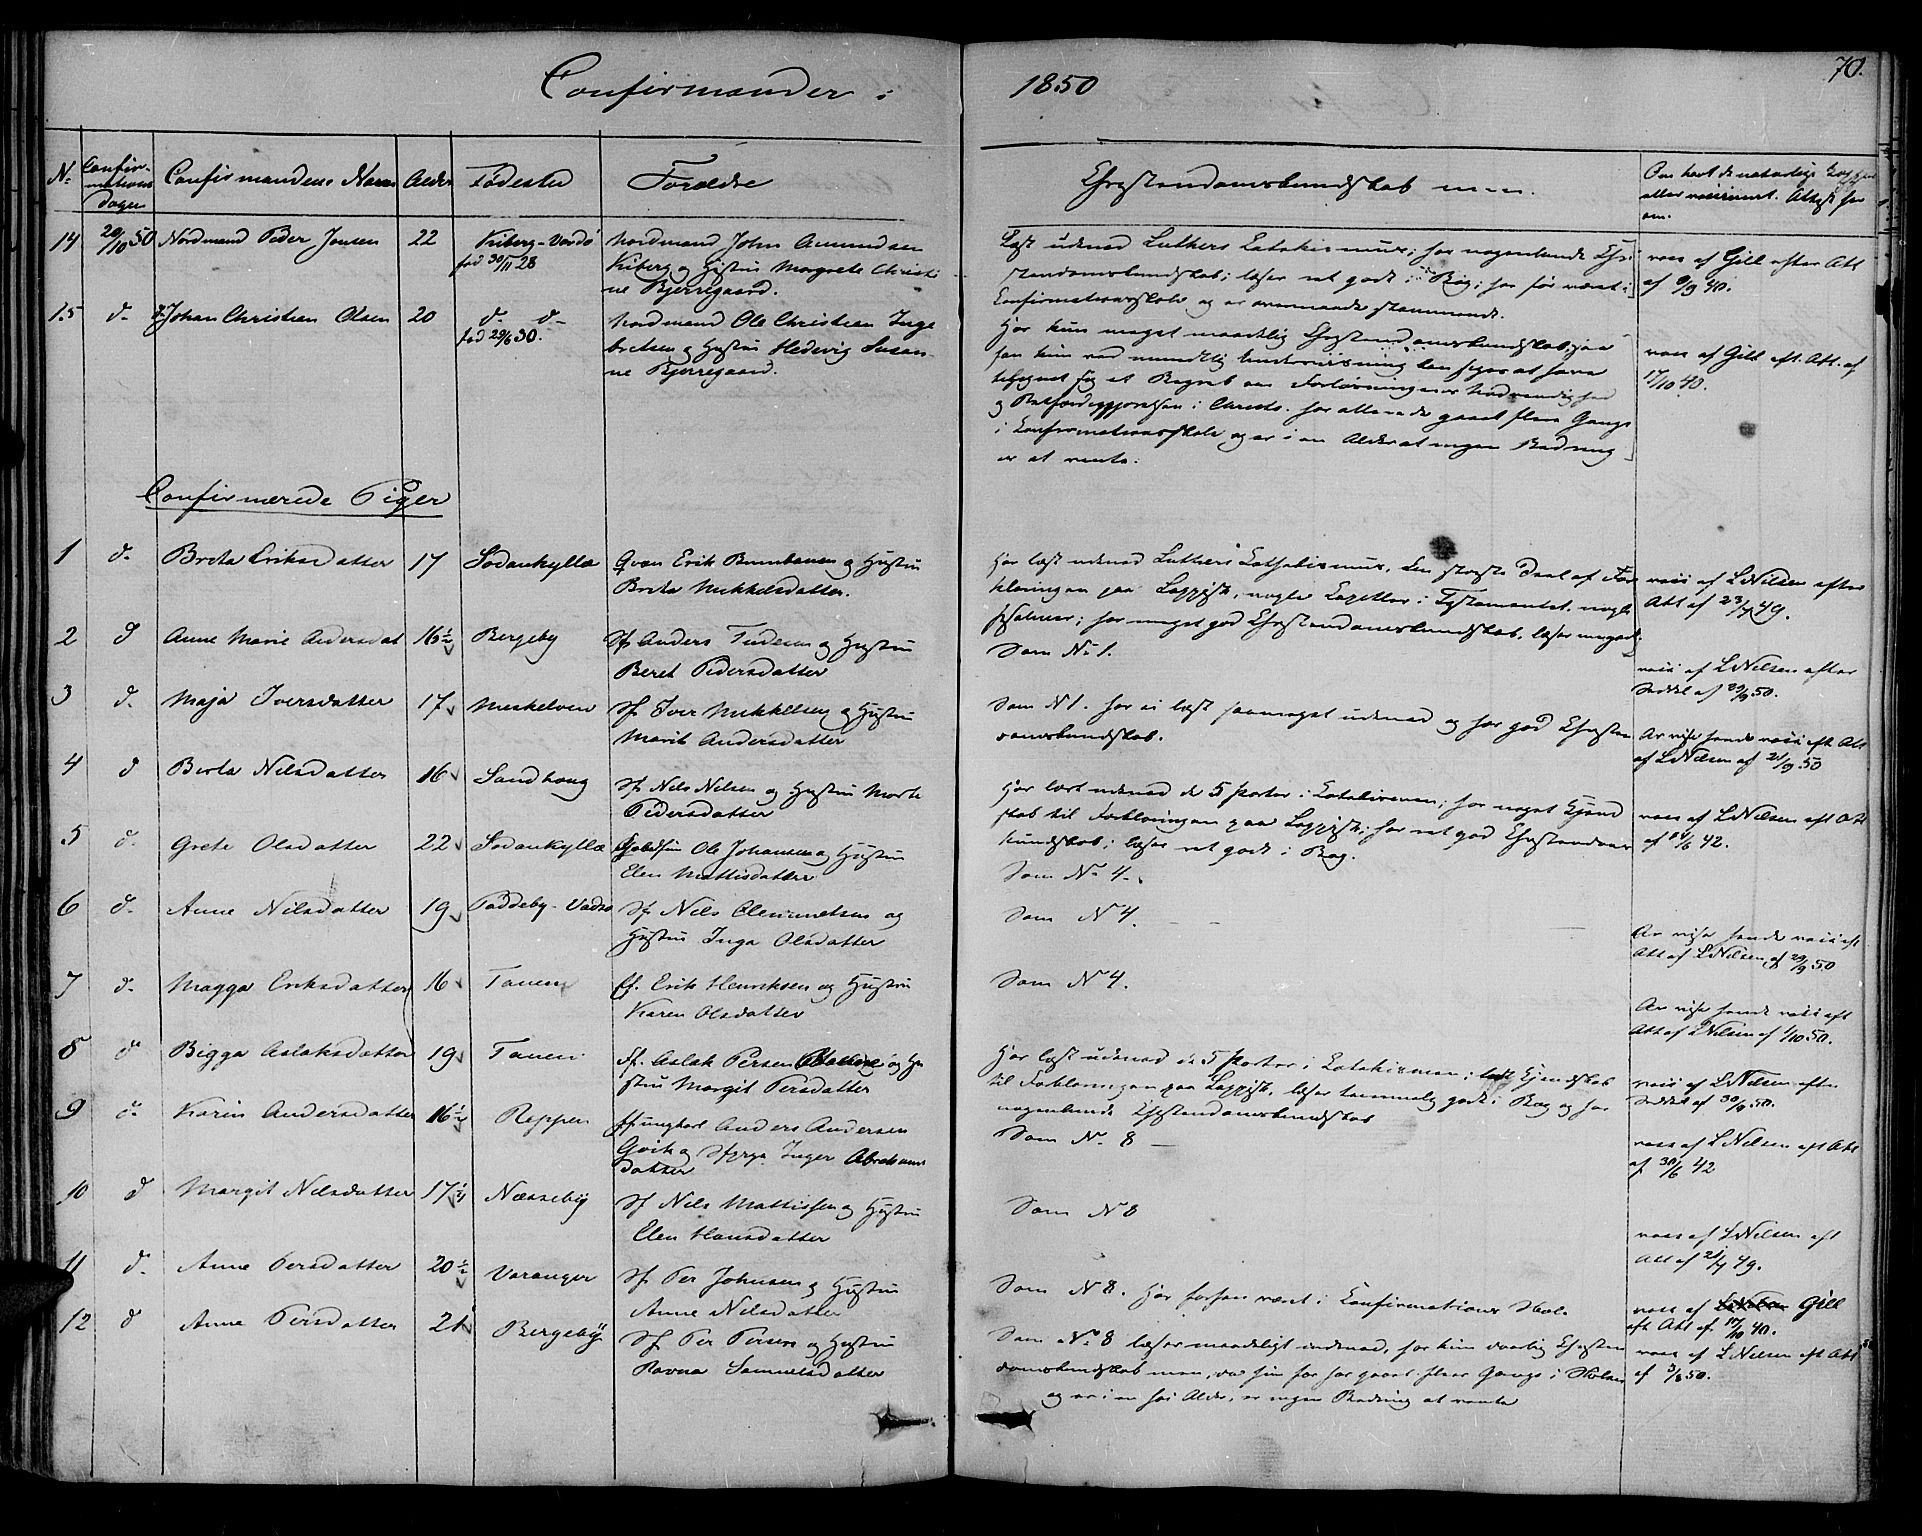 Confirmander i 1850
70.
No Confirmations Dagen Confirmandens Navn Alder Fødested Forældre
Christendomskundskab m. m.
Om havt de naturlige Kopper
eller vaccineret. Attest her
om.
14 20/10 50 Nordmand Peder Jonsen 22 Kiberg - Vardø
fød 30/11 28
Nordmand John Amundsen
Kiberg og Hustru Margrete Christi
ne Bjerregaard.
Læst udenad Luthers Catekismus; har nogenlunde Chri
stendomskundskab; læser ret godt i Bog; har før været i
Confirmationsskole og er overmaade stammende.
vacc af Gill efter Att
af 9/9 40.
15 d. Johan Christian Olsen 20 d. d.
fød 29/6 30.
Nordmand Ole Christian Inge
bretsen og Hustru Hedevig Susan-
ne Bjerregaard.
Har kun meget maadelig Christendomskundskab, saa
han kun ved mundtlig Underviisning kan siges at have
tilegnet sig et Begreb om Forløsningens Nødvendighed
og Retfærdiggjørelsen i Christo. har allerede gaaet flere Gange
i Confirmationsskole og er i en Alder at ingen Bedring
er at vente.
vacc af Gill eft. Att. af
17/10 40.
Confirmerede Piger
1 d. Brita Eriksdatter 17 Sodankylle
Qvæn Erik og Hustru
Brita Mikkelsdatter.
Har læst udenad Luthers Cathekismus, den største Deel af For
klaringen paa Lappisk, nogle Capitler i Testamentet, nogle
Psalmer; har meget god Christendomskundskab, læser meget
vacc af L Nilsen efter
Att af 23/4 49.
2 d Anne Marie Andersdat 16½ Bergeby
Sf Anders Tudesen og Hustru
Beret Pedersdatter
Som No 1.
vacc af L Nilsen efter
Seddel af 29/9 50.
3 d. Maja Iversdatter 17 Meskelven
Sf Iver Mikkelsen og Hustru
Marit Andersdatter
Som N 1. har ei læst saameget udenad og har god Christen
domskundskab.
Ar vise hende vacc eft Att
af L Nilsen af 21/9 50
4 d Berta Nilsdatter 16 Sandhoug
Sf Nils Nilsen og Hustru Marte
Pedersdatter
Har læst udenad de 5 Parter i Catekismen; har noget Kjend
skab til Forklaringen paa Lappisk; har ret god Christendoms
kundskab; læser ret godt i Bog.
vacc af L Nilsen eft Att
af /6 42.
5 d. Grete Olsdatter 22 Sodankyllæ
Ole Johansen og Hustru
Elen Mattisdatter
Som No 4.
6 d. Anne Nilsdatter 19 Paddeby - Vadsø
Sf Nils Clemmetsen og
Hustru Inga Olsdatter
Som N 4.
Ar vise hende vacc eft
Att af L Nilsen af 29/9 50
7 d. Magga Eriksdatter 16 Tanen
Ff. Erik Henriksen og Hustru
Karen Olsdatter
Som N 4.
Ar vise hende vacc eft
Att af L Nilsen af 1/10 50.
8 d Bigga Aslaksdatter 19 Tanen
Ff. Aslak Persen og Hu
stru Margit Persdatter
Har læst udenad de 5 Parter i Catekismen; Kjendskab
til Forklaringen paa Lappisk, læser temmelig godt i Bog og har
nogenlunde Christendomskundskab
vacc af L Nilsen efter
Seddel af 30/9 50.
9 d. Karin Andersdatter 16½ Reppen
Ff ungkarl Anders Andersen
Gvik og Pige Inger Abrahams
datter
Som No 8
vacc af L Nilsen eft Att
af 30/6 42
10 d Margit Nilsdatter 17½ Næsseby
Sf Nils Mattissen og Hustru
Elen Hansdatter
Som N 8
vacc af L Nilsen eft
Att af 21/4 49.
11 d. Anne Persdatter 20½ Varanger
Sf Per Johnsen og Hustru
Anne Nilsdatter
Som N 8. Har forhen været i Confirmations Skole
vacc af L Nilsen Gill
eft Att af 17/10 40.
12 d Anne Persdatter 21 Bergeby
Sf Per Persen og Hustru
Ravna Samuelsdatter
Som No 8 læser maadeligt indenad, har kun daarlig Christen
domskundskab men, da hun før har gaaet flere Gange i Skolen
og er i en høi Alder, er ingen Bedring at vente
vacc af L Nilsen eft Att
af 3/8 50.